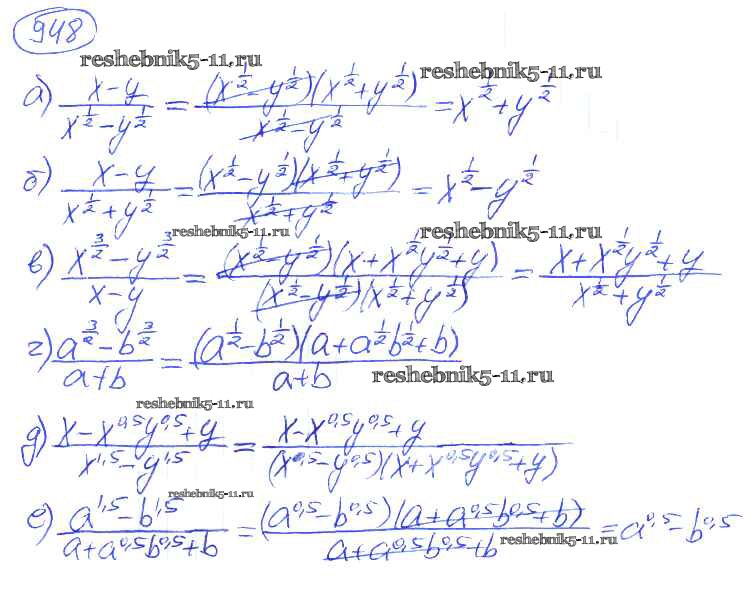 948
reshebnik5-11.ru
reshebnik5-11.ru
а) (x-y)/(x^(1/2)-y^(1/2)) = ((x^(1/2)-y^(1/2))(x^(1/2)+y^(1/2)))/(x^(1/2)-y^(1/2)) = x^(1/2)+y^(1/2)
б) (x-y)/(x^(1/2)+y^(1/2)) = ((x^(1/2)-y^(1/2))(x^(1/2)+y^(1/2)))/(x^(1/2)+y^(1/2)) = x^(1/2)-y^(1/2)
reshebnik5-11.ru
reshebnik5-11.ru
в) (x^(3/2)-y^(3/2))/(x-y) = ((x^(1/2)-y^(1/2))(x+x^(1/2)y^(1/2)+y))/((x^(1/2)-y^(1/2))(x^(1/2)+y^(1/2))) = (x+x^(1/2)y^(1/2)+y)/(x^(1/2)+y^(1/2))
г) (a^(3/2)-b^(3/2))/(a+b) = ((a^(1/2)-b^(1/2))(a+a^(1/2)b^(1/2)+b))/(a+b)
reshebnik5-11.ru
reshebnik5-11.ru
д) (x-x^0,5y^0,5+y)/(x^1,5-y^1,5) = (x-x^0,5y^0,5+y)/((x^0,5-y^0,5)(x+x^0,5y^0,5+y))
reshebnik5-11.ru
е) (a^1,5-b^1,5)/(a+a^0,5b^0,5+b) = ((a^0,5-b^0,5)(a+a^0,5b^0,5+b))/(a+a^0,5b^0,5+b) = a^0,5-b^0,5
reshebnik5-11.ru